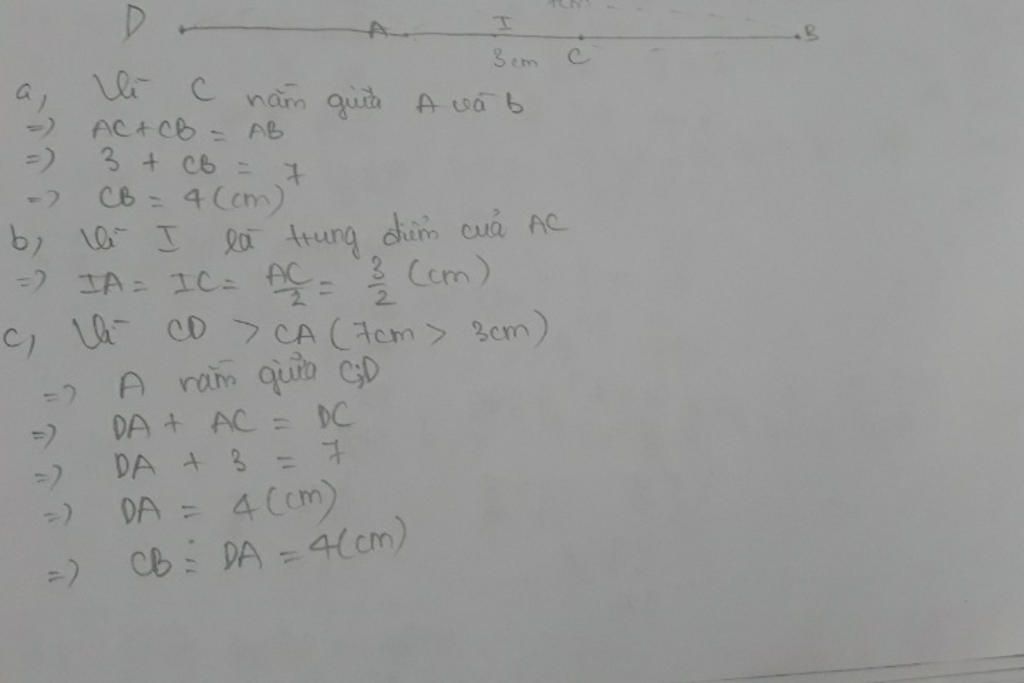 D A I B
3cm C
a, Vì C nằm giữa A và b
=> AC+CB = AB
=> 3 + CB = 7
=> CB = 4(cm)
b, Vì I là trung điểm cuả AC
=> IA = IC = AC/2 = 3/2 (cm)
c, Vì CD > CA (7cm > 3cm)
=> A nằm giữa C;D
=> DA + AC = DC
=> DA + 3 = 7
=> DA = 4(cm)
=> CB = DA = 4(cm)